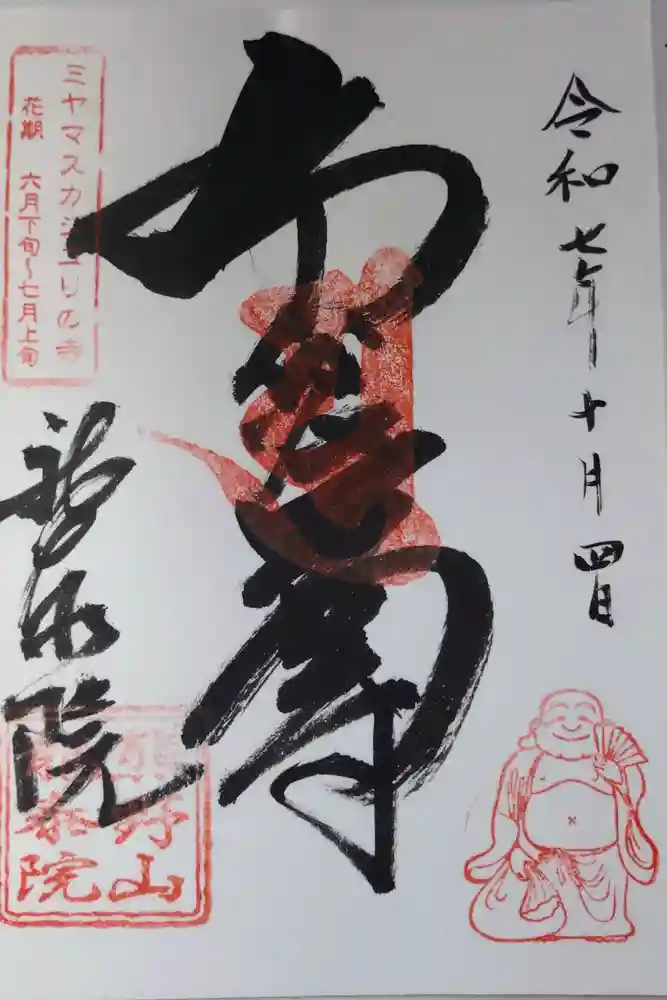 令和七年十月四日
布袋尊
院
ミヤマスカシユリの寺
花期 六月下旬～七月上旬
熊野山
院